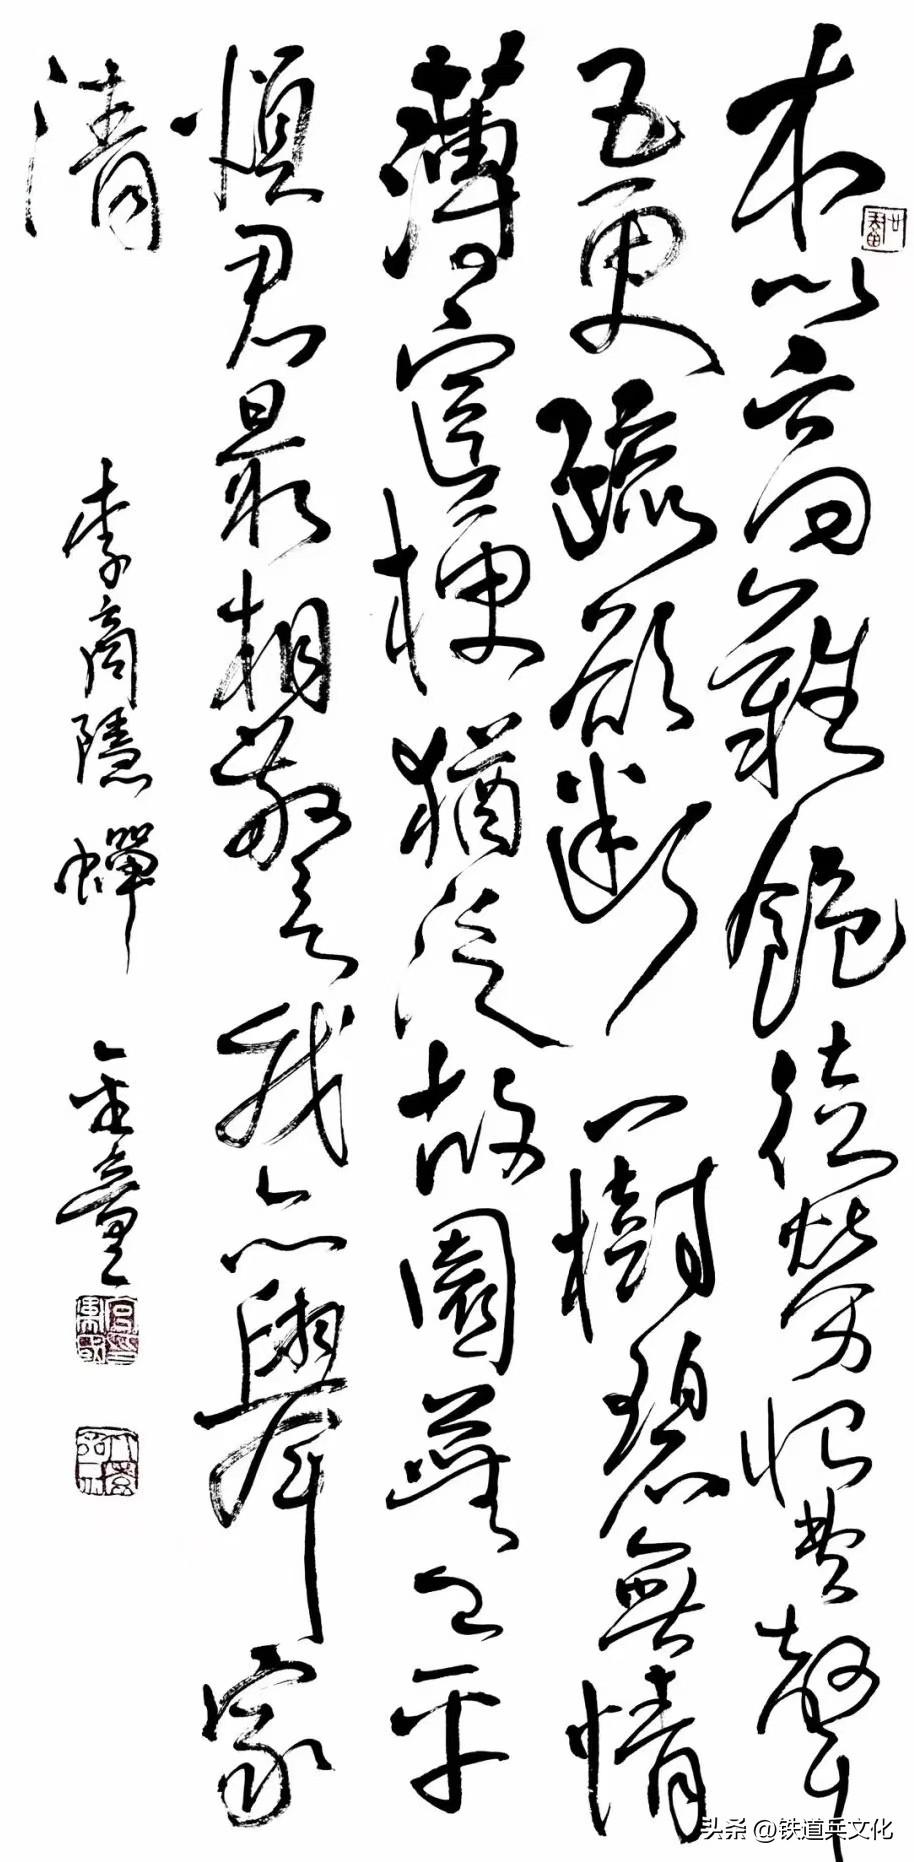 本以高难飽徒勞恨費聲
五更疏欲斷一樹碧無情
薄宦梗猶泛故園蕪已平
煩君最相警我亦舉家
清
李商隱蟬
金童
头条 @铁道兵文化